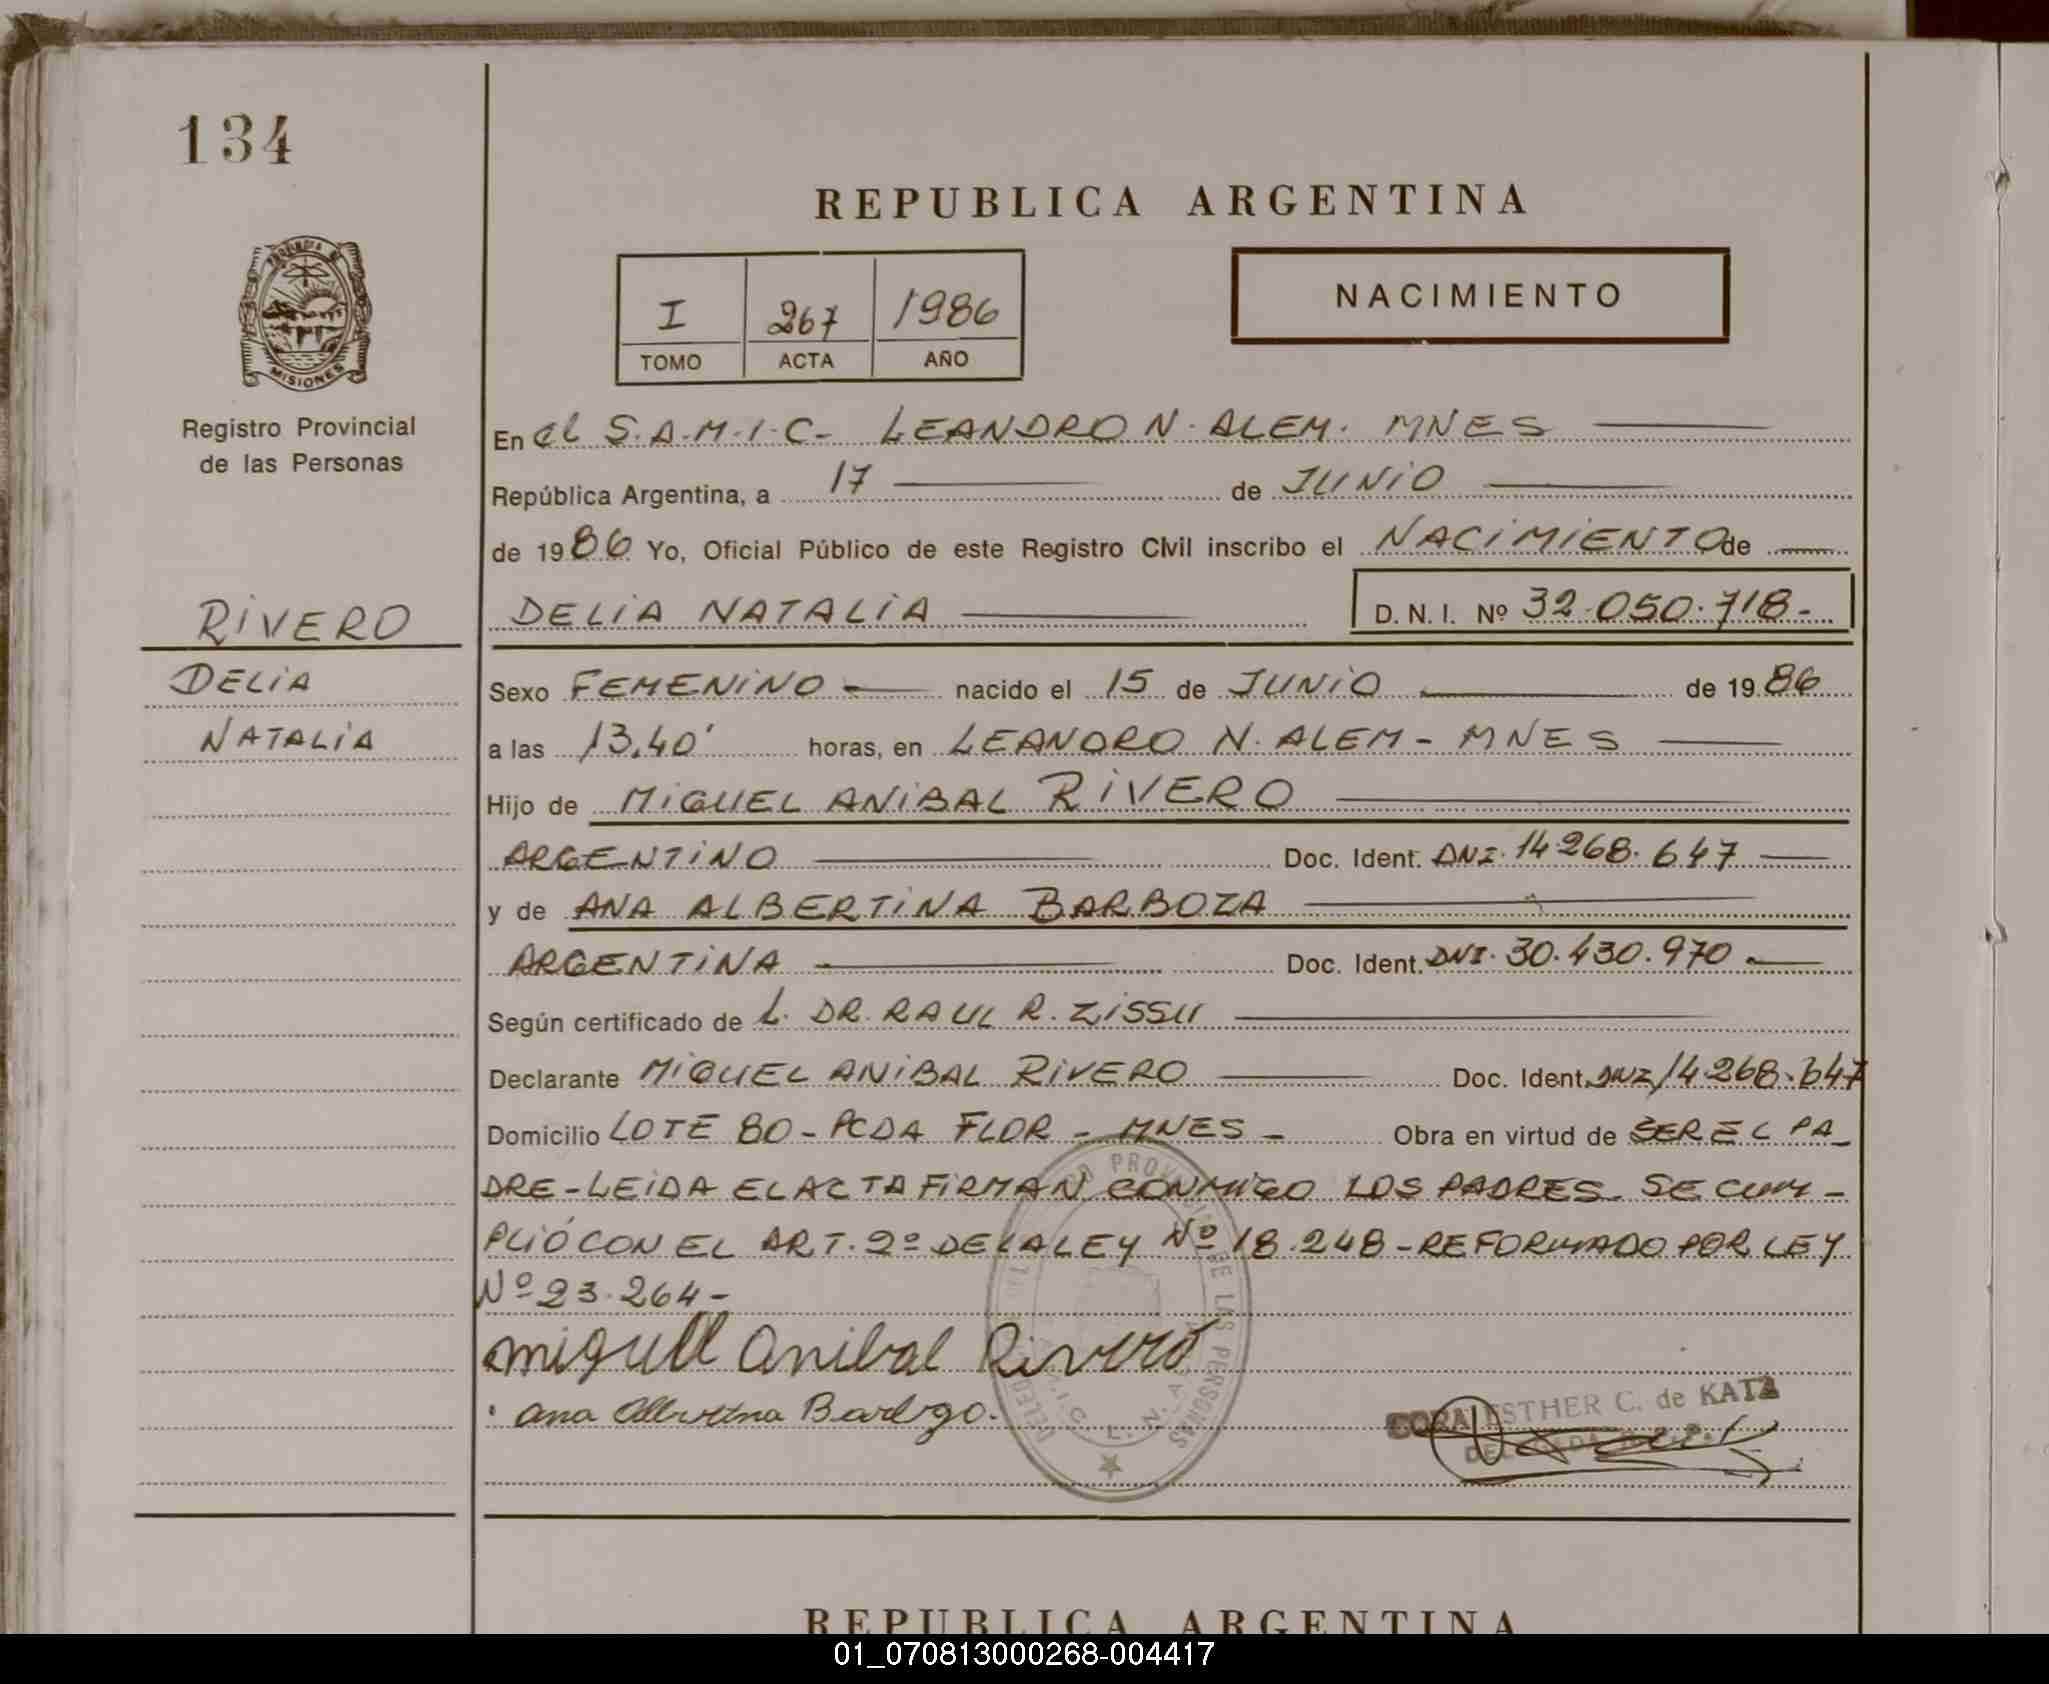 134
REPUBLICA ARGENTINA
I 267 1986
TOMO ACTA AÑO
NACIMIENTO
MISIONES
Registro Provincial
de las Personas
En el S.A.M.I.C. LEANDRO N. ALEM. MNES
República Argentina, a 17 de JUNIO
de 1986 Yo, Oficial Público de este Registro Civil inscribo el NACIMIENTO de
RIVERO
DELIA NATALIA D.N.I. Nº 32.050.718.-
DELIA
NATALIA
Sexo FEMENINO - nacido el 15 de JUNIO de 1986
a las 13,40' horas, en LEANDRO N. ALEM - MNES
Hijo de MIGUEL ANIBAL RIVERO
ARGENTINO Doc. Ident. DNI. 14.268.647
y de ANA ALBERTINA BARBOZA
ARGENTINA Doc. Ident. DNI. 30.430.970
Según certificado de L. DR. RAUL R. ZISSU
Declarante MIGUEL ANIBAL RIVERO Doc. Ident. DNI 14.268.647
Domicilio LOTE 80 - PCDA FLOR - MNES - Obra en virtud de SER EL PA_
DRE - LEIDA EL ACTA FIRMAN CONMIGO LOS PADRES. SE CUM -
PLIÓ CON EL ART. 2º DE LA LEY Nº 18.248 - REFORMADO POR LEY
Nº 23.264 -
Miguel Anibal Rivero
Ana Albertina
CORA ESTHER C. de KATZ
REPUBLICA ARGENTINA
01_070813000268-004417